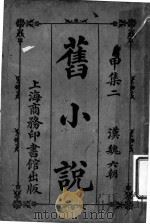 甲集二 漢魏六朝
舊小說
上海商務印書館出版